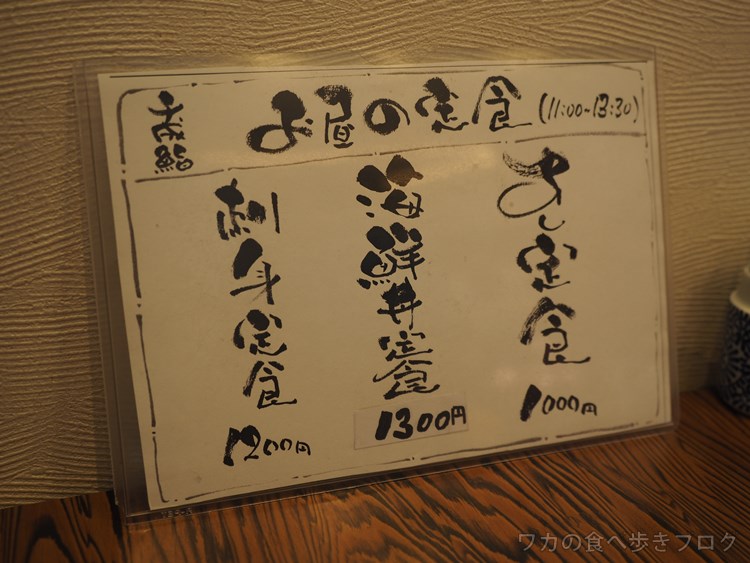 お昼の定食 (11:00-13:30)
すし定食
1000円
海鮮丼定食
1300円
刺身定食
1200円
ワカの食べ歩きブログ